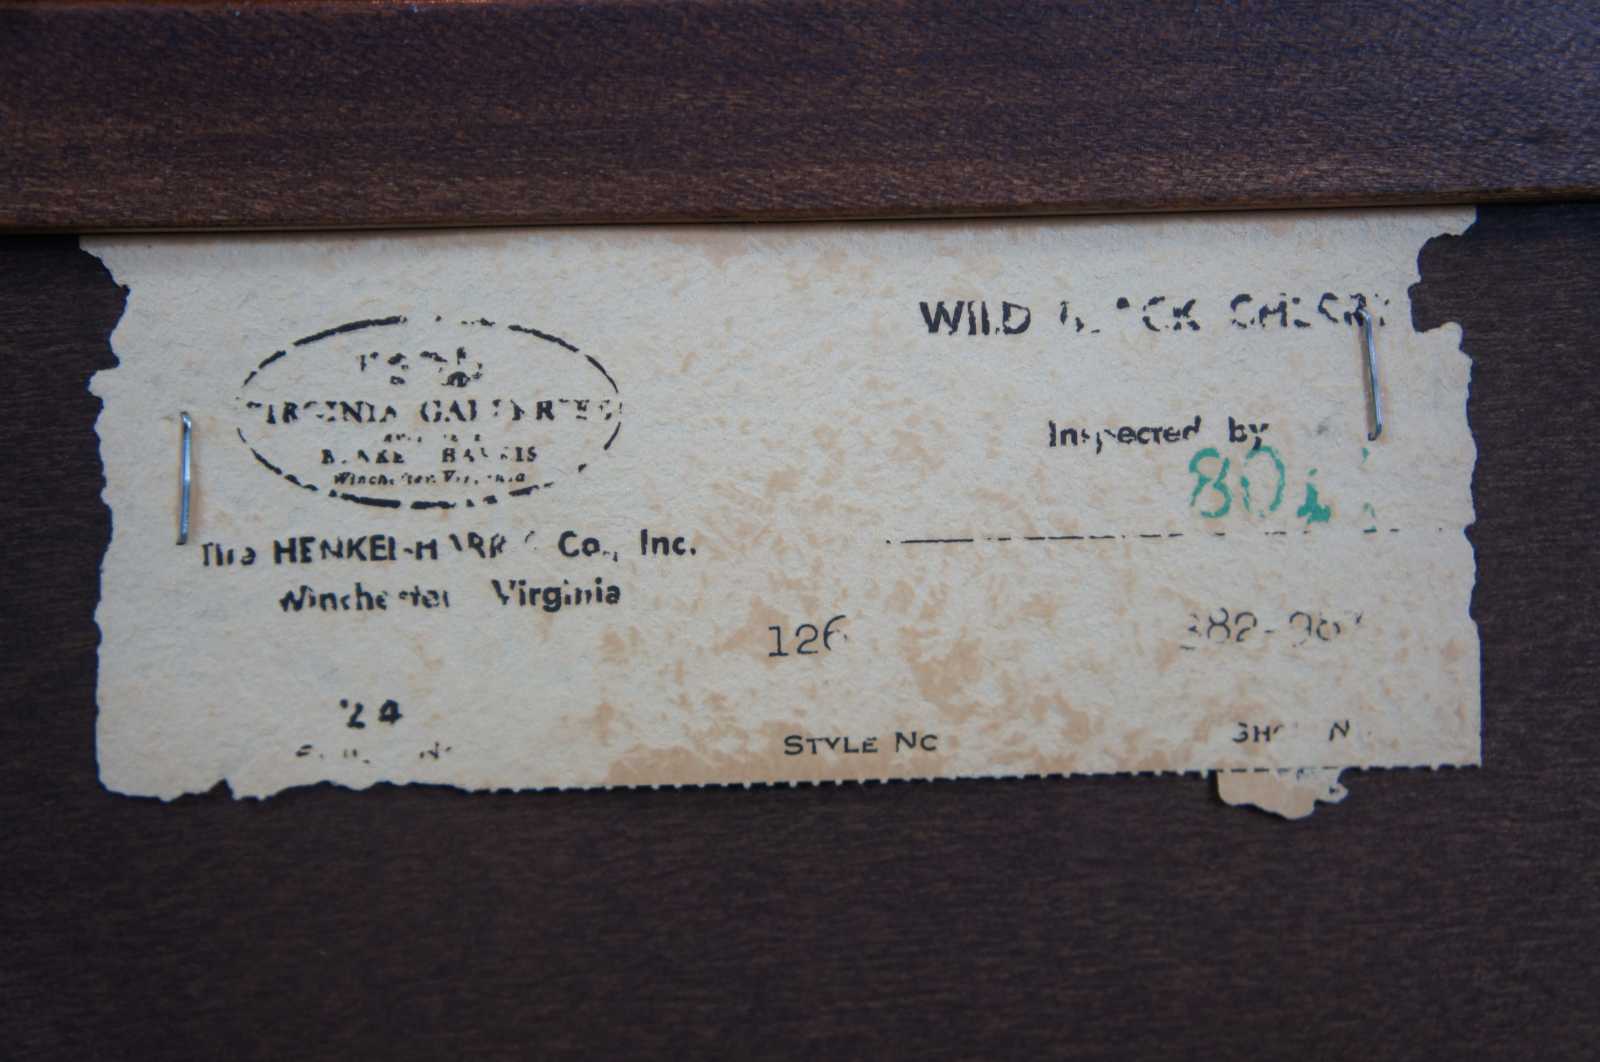 VIRGINIA GALLERIES
BLAKE HARRIS
Winchester, Virginia
The HENKEL-HARRIS Co., Inc.
Winchester Virginia
WILD BLACK CHERRY
Inspected by
126
24
STYLE No